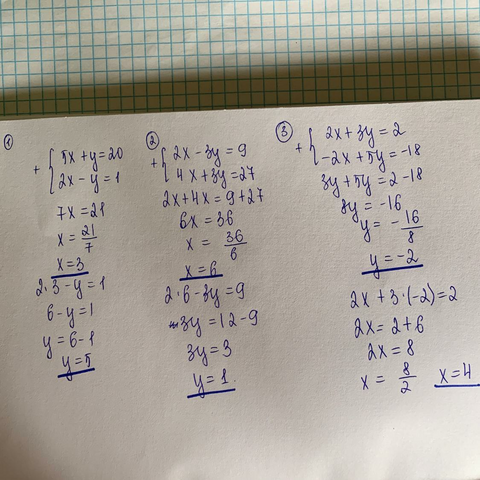 ①
+ { 5x + y = 20
2x - y = 1
7x = 21
x = 21/7
x = 3
2·3 - y = 1
6 - y = 1
y = 6 - 1
y = 5
②
+ { 2x - 3y = 9
4x + 3y = 27
2x + 4x = 9 + 27
6x = 36
x = 36/6
x = 6
2·6 - 3y = 9
3y = 12 - 9
3y = 3
y = 1
③
+ { 2x + 3y = 2
-2x + 5y = -18
3y + 5y = 2 - 18
8y = -16
y = - 16/8
y = -2
2x + 3·(-2) = 2
2x = 2 + 6
2x = 8
x = 8/2 x = 4